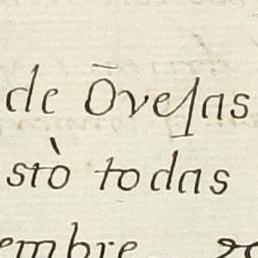 de Ōvejas
stò todas
embre